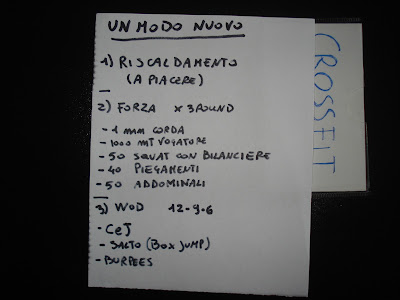 UN MODO NUOVO
1) RISCALDAMENTO
(A PIACERE)
2) FORZA x 3 ROUND
- 1 min CORDA
- 1000 MT VOGATORE
- 50 SQUAT CON BILANCIERE
- 40 PIEGAMENTI
- 50 ADDOMINALI
3) WOD 12-9-6
- CeJ
- SALTO (BOX JUMP)
- BURPEES
CROSSFIT